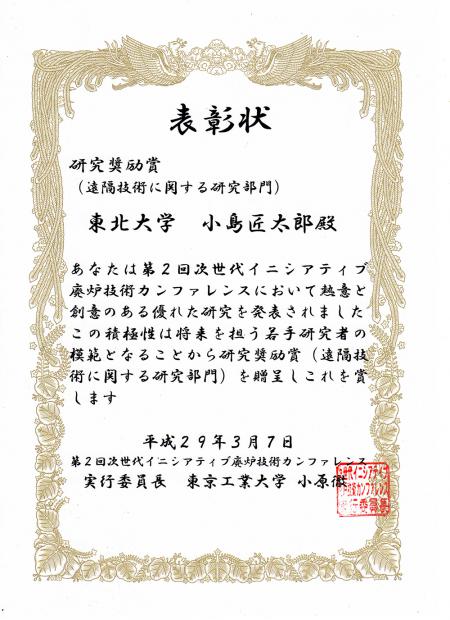 表彰状
研究奨励賞
（遠隔技術に関する研究部門）
東北大学　小島匠太郎殿
あなたは第２回次世代イニシアティブ
廃炉技術カンファレンスにおいて熱意と
創意のある優れた研究を発表されました
この積極性は将来を担う若手研究者の
模範となることから研究奨励賞（遠隔技
術に関する研究部門）を贈呈しこれを賞
します
平成２９年３月７日
第２回次世代イニシアティブ廃炉技術カンファレンス
実行委員長　東京工業大学　小原徹